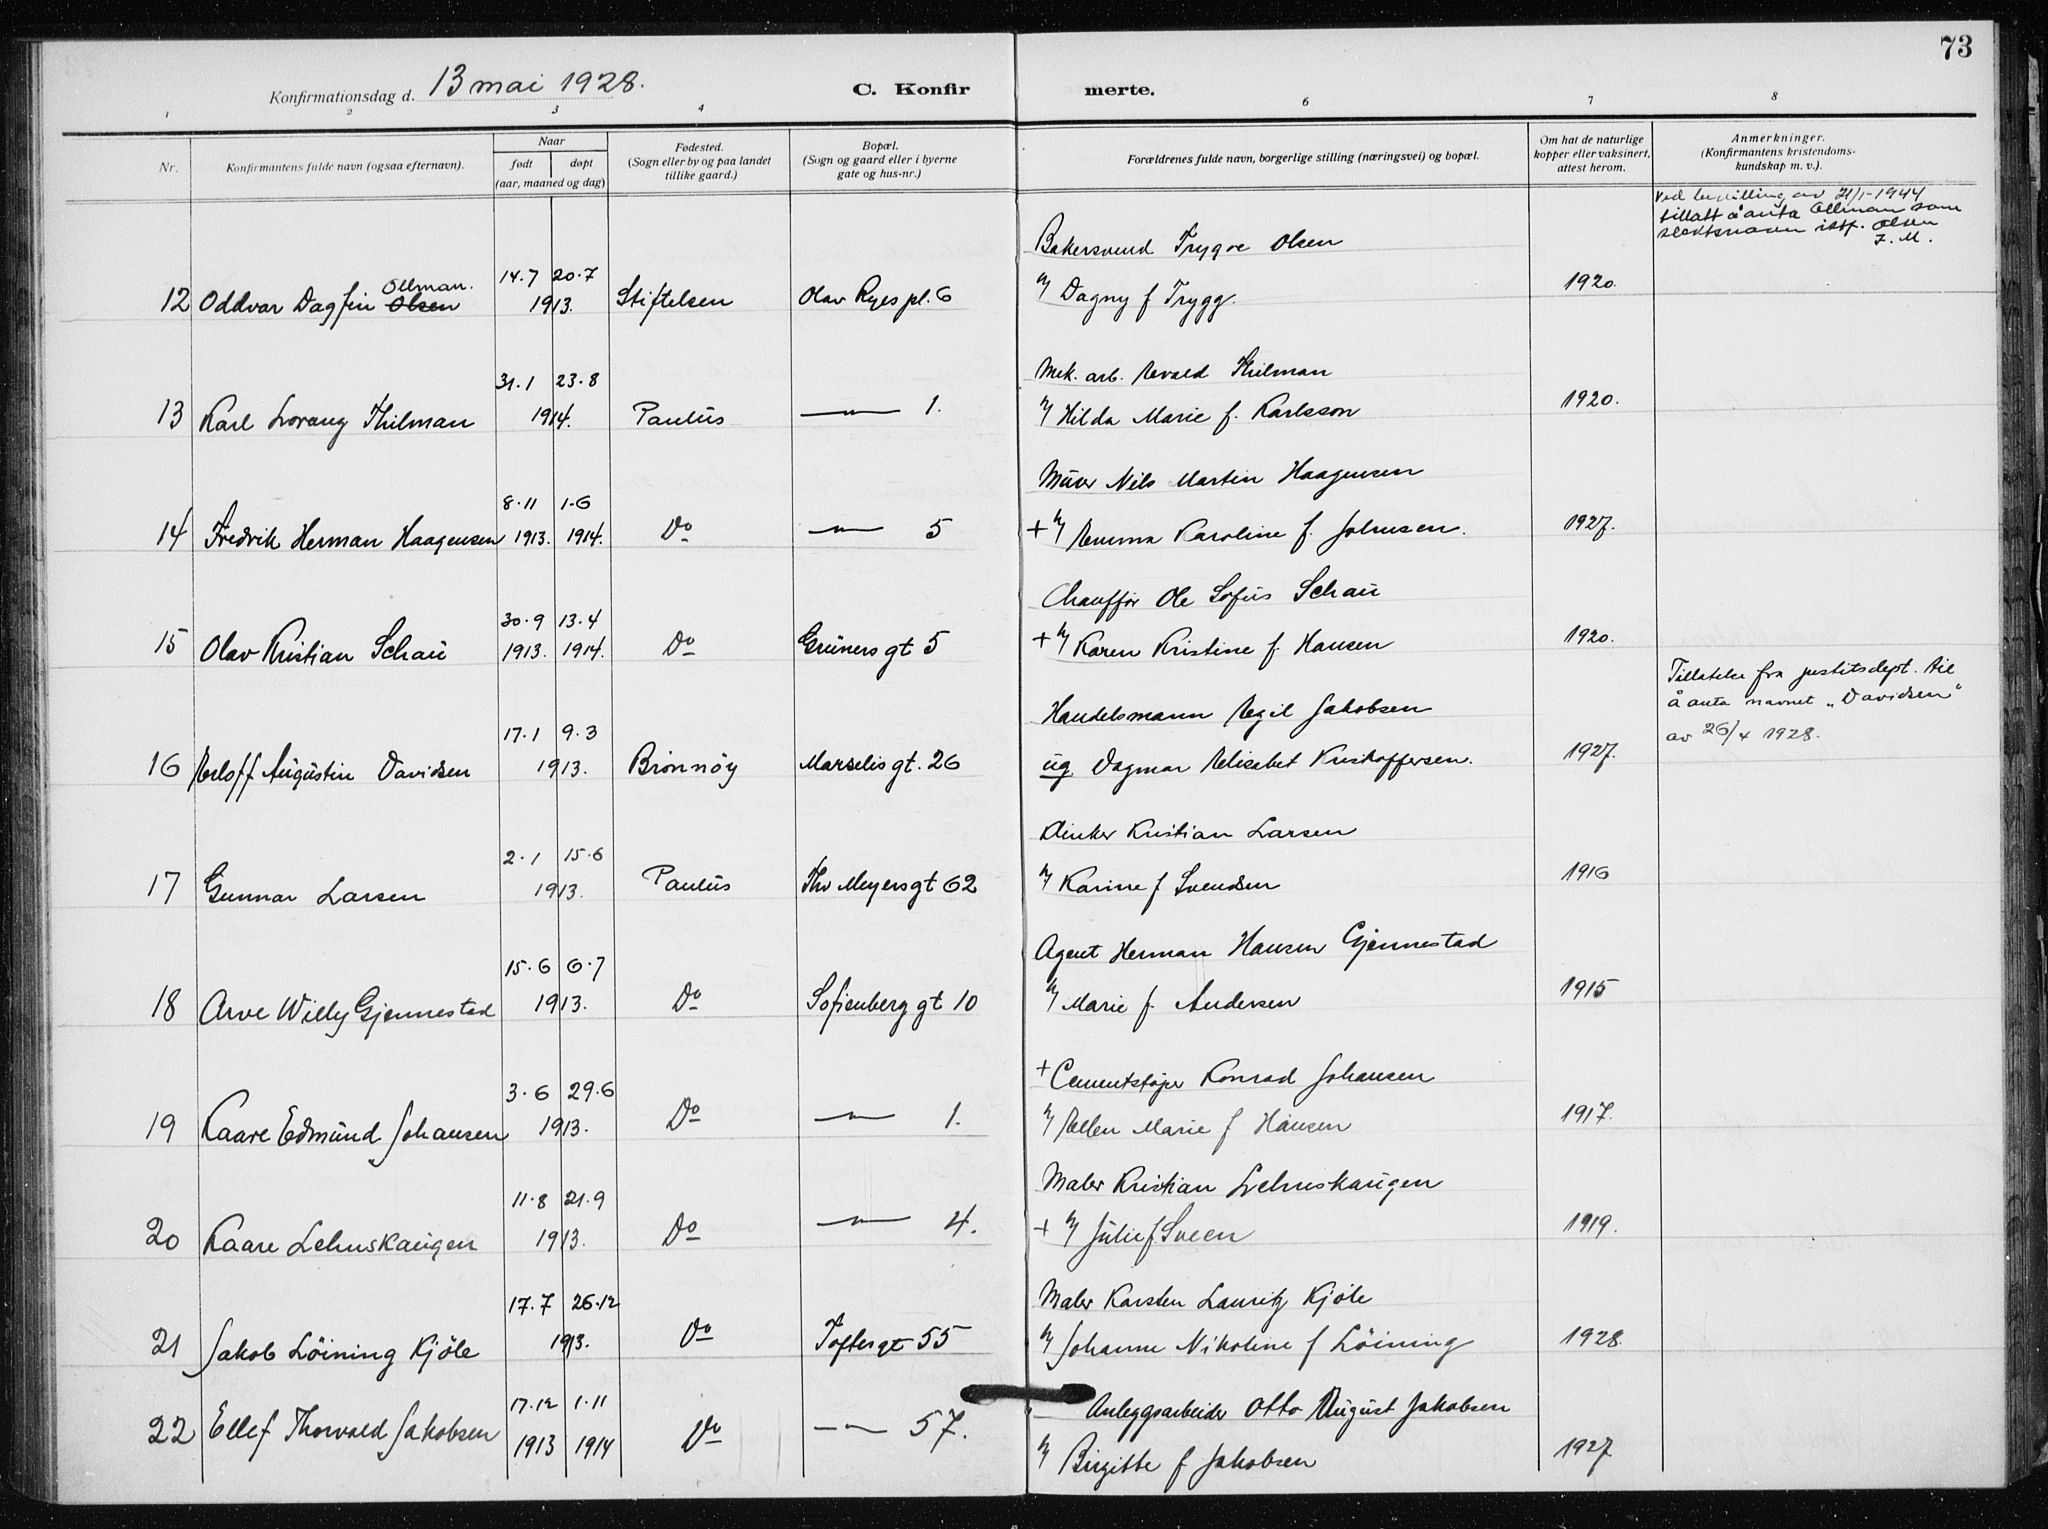 73
Konfirmationsdag d. 13 mai 1928. C. Konfir merte.
1 2 3 4 5 6 7 8
Nr. Konfirmantens fulde navn (ogsaa efternavn). Naar født døpt (aar, maaned og dag) Fødested. (Sogn eller by og paa landet tillike gaard.) Bopæl. (Sogn og gaard eller i byerne gate og hus-nr.) Forældrenes fulde navn, borgerlige stilling (næringsvei) og bopæl. Om hat de naturlige kopper eller vaksinert, attest herom. Anmerkninger. (Konfirmantens kristendoms-kundskap m. v.).
Ved bevilling av 21/1-1944
tillatt å anta Ollman som
slektsnavn istf. Olsen
J. M.
Bakersvend Trygve Olsen
Ollman.
14.7 20.7
12 Oddvar Dagfin Olsen 1913. Stiftelsen Olav Ryes pl. 6 Dagny f Trygg. 1920.
Mek. arb. Evald Thilman
31.1 23.8
13 Karl Lorang Thilman 1914. Paulus —"— 1. Hilda Marie f. Karlsson 1920.
Murer Nils Martin Haagensen
8.11 1.6
14 Fredrik Herman Haagensen 1913. 1914. Do —"— 5 + Emma Karoline f. Johnsen. 1927.
Chauffør Ole Sofus Schau
30.9 13.4
15 Olav Kristian Schau 1913. 1914. Do Grüners gt 5 + Karen Kristine f. Hansen 1920.
Tillatelse fra justitsdept. til
å anta navnet „Davidsen"
av 26/4 1928.
Handelsmann Egil Jakobsen
17.1 9.3
16 Erloff Augustin Davidsen 1913. Brønnøy Marselis gt. 26 ug. Dagmar Elisabet Kristoffersen. 1927.
Klinker Kristian Larsen
2.1 15.6
17 Gunnar Larsen 1913. Paulus Thv Meyers gt 62 Karine f Svendsen 1916
Agent Herman Hansen Gjennestad
15.6 6.7
18 Arve Willy Gjennestad 1913. Do Sofienberg gt 10 Marie f. Andersen 1915
+ Cementstøper Konrad Johansen
3.6 29.6
19 Kaare Edmund Johansen 1913. Do —"— 1. Ellen Marie f Hansen 1917.
Maler Kristian Lehnskaugen
11.8 21.9
20 Kaare Lehnskaugen 1913. Do —"— 4. + Julie f Sveen 1919.
Maler Karsten Lauritz Kjøle
17.7 26.12
21 Jakob Löining Kjöle 1913. Do Toftes gt 55 Johanne Nikoline f Löining 1928.
Anleggsarbeider Otto August Jakobsen
17.12 1.11
22 Ellef Thorvald Jakobsen 1913 1914 Do —"— 57. Birgitte f Jakobsen 1927